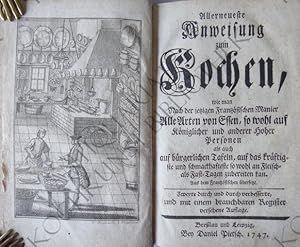 Allerneueste
Anweisung
zum
Kochen,
wie man
Nach der jetzigen Frantzösischen Manier
Alle Arten von Essen, so wohl auf
Königlicher und anderer Hoher
Personen
als auch
auf bürgerlichen Tafeln, auf das kräftig-
ste und schmackhafteste so wohl an Fleisch-
als Fast-Tagen zubereiten kan.
Aus dem Frantzösischen übersetzt.
Zweyte durch und durch verbesserte,
und mit einem brauchbaren Register
versehene Auflage.
Breßlau und Leipzig,
Bey Daniel Pietsch. 1747.